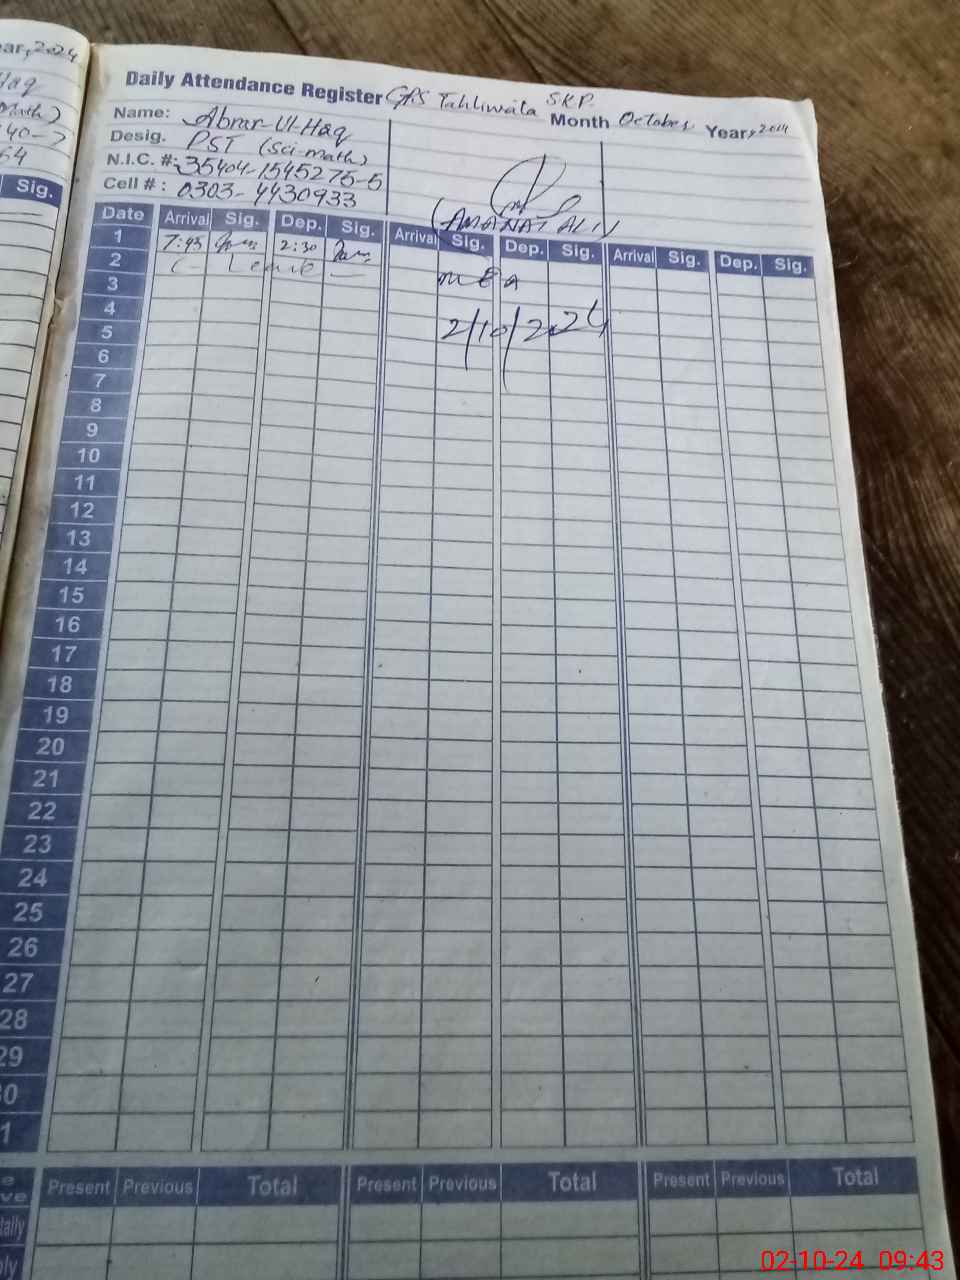 ar, 2024
Haq
Math)
40-7
64
Sig.
Daily Attendance Register GPS Tahliwala SKP.
Name: Abrar-Ul-Haq
Month October Year, 2024
Desig. PST (Sci-math)
N.I.C. #: 35404-1545275-5
Cell # : 0303-4430933
(AMANAT ALI)
Date Arrival Sig. Dep. Sig. Arrival Sig. Dep. Sig. Arrival Sig. Dep. Sig.
1 7:45 2:30
2 C- Leave
MEA
3
4
2/10/2024
5
6
7
8
9
10
11
12
13
14
15
16
17
18
19
20
21
22
23
24
25
26
27
28
29
0
1
e
ve
Present Previous Total Present Previous Total Present Previous Total
tally
ly
02-10-24 09:43